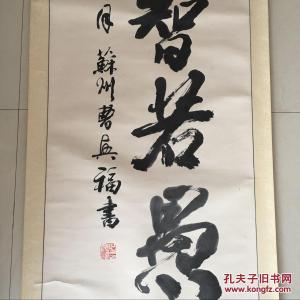 智若愚
月 蘇州曹兴福書
孔夫子旧书网
www.kongfz.com